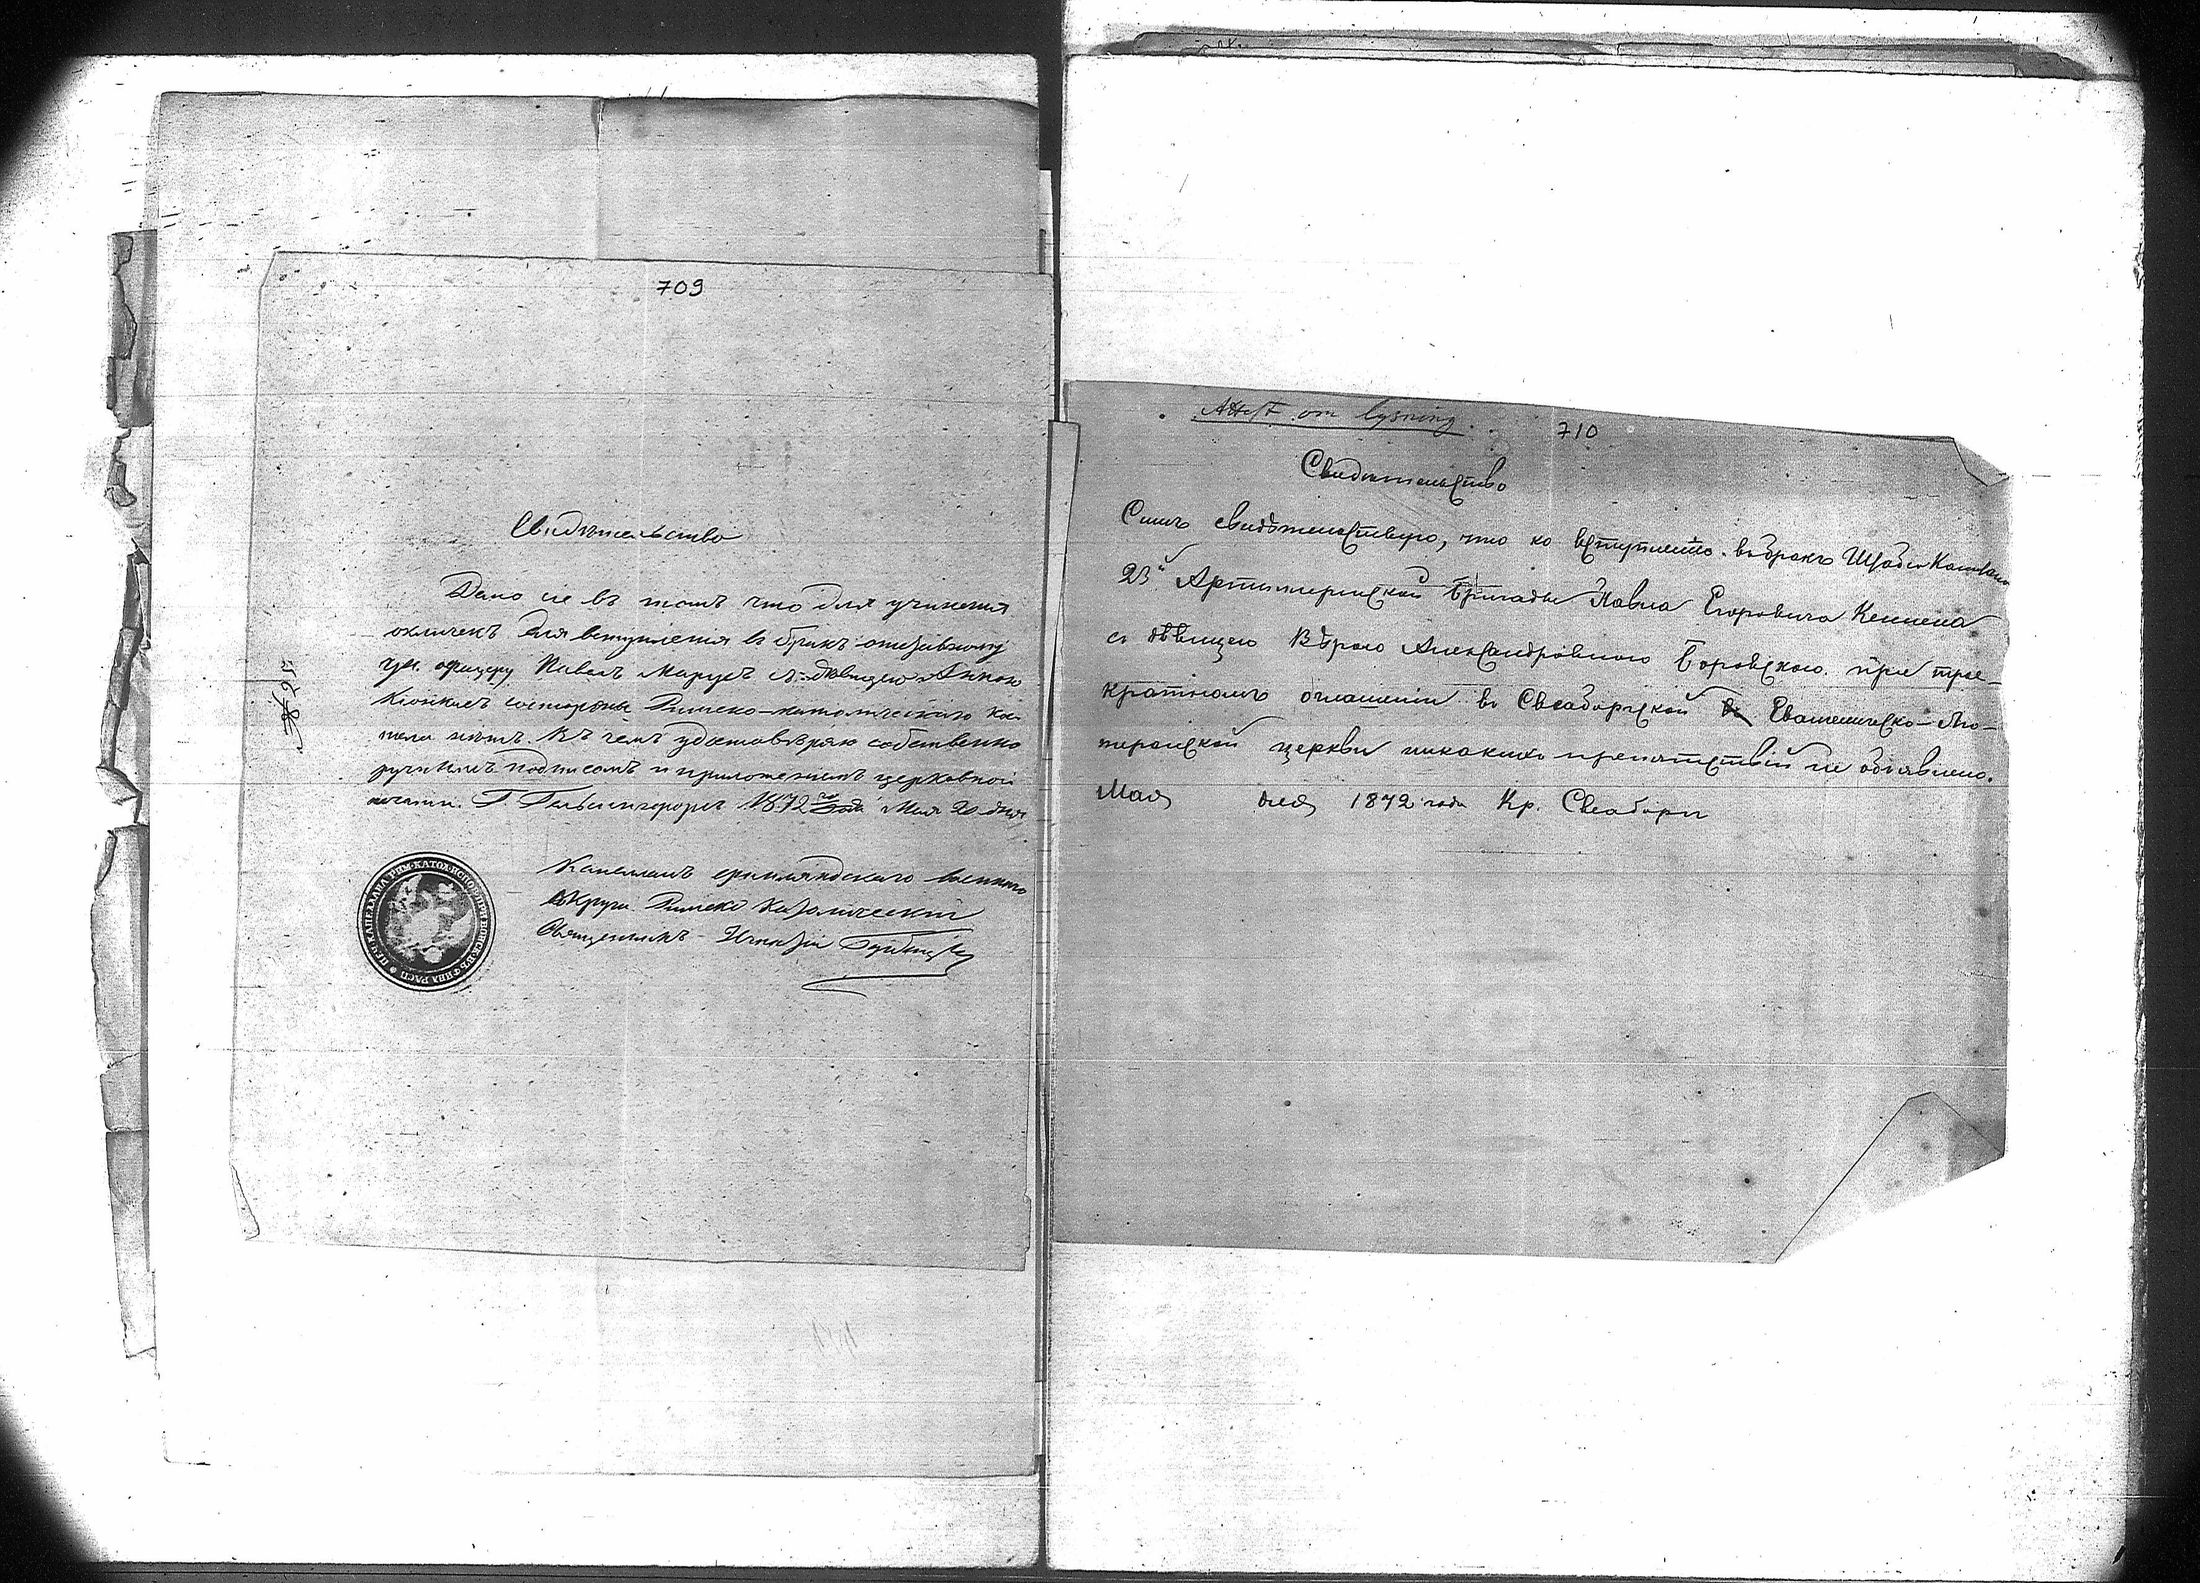 709
Свидѣтельство
Дано сіе въ томъ что для учиненія
окличекъ для вступленія въ бракъ
ун. офицеру Павелъ Марусъ съ дѣвицею Анною
стороны Римско-католическаго ко-
нѣтъ. Въ чемъ удостовѣряю собственно
ручнымъ подписомъ и приложеніемъ церковной
печати. Г. Гельсингфорсъ 1872 года Мая 20 дня
№ 215
Капелланъ финляндскаго военнаго
округа Римско Католическій
Священникъ
Attest om lysning.
710
Свидѣтельство
Симъ свидѣтельствую, что ко вступленію въ бракъ Штабсъ Капитана
23й Артиллерійской бригады Павла Егоровича
съ дѣвицею Вѣрою Александровною Боровскою при трое-
кратномъ оглашеніи въ Свеаборгской Евангелическо-Лю-
теранской церкви никакихъ препятствій не объявлено.
Мая дня 1872 года Кр. Свеаборгъ